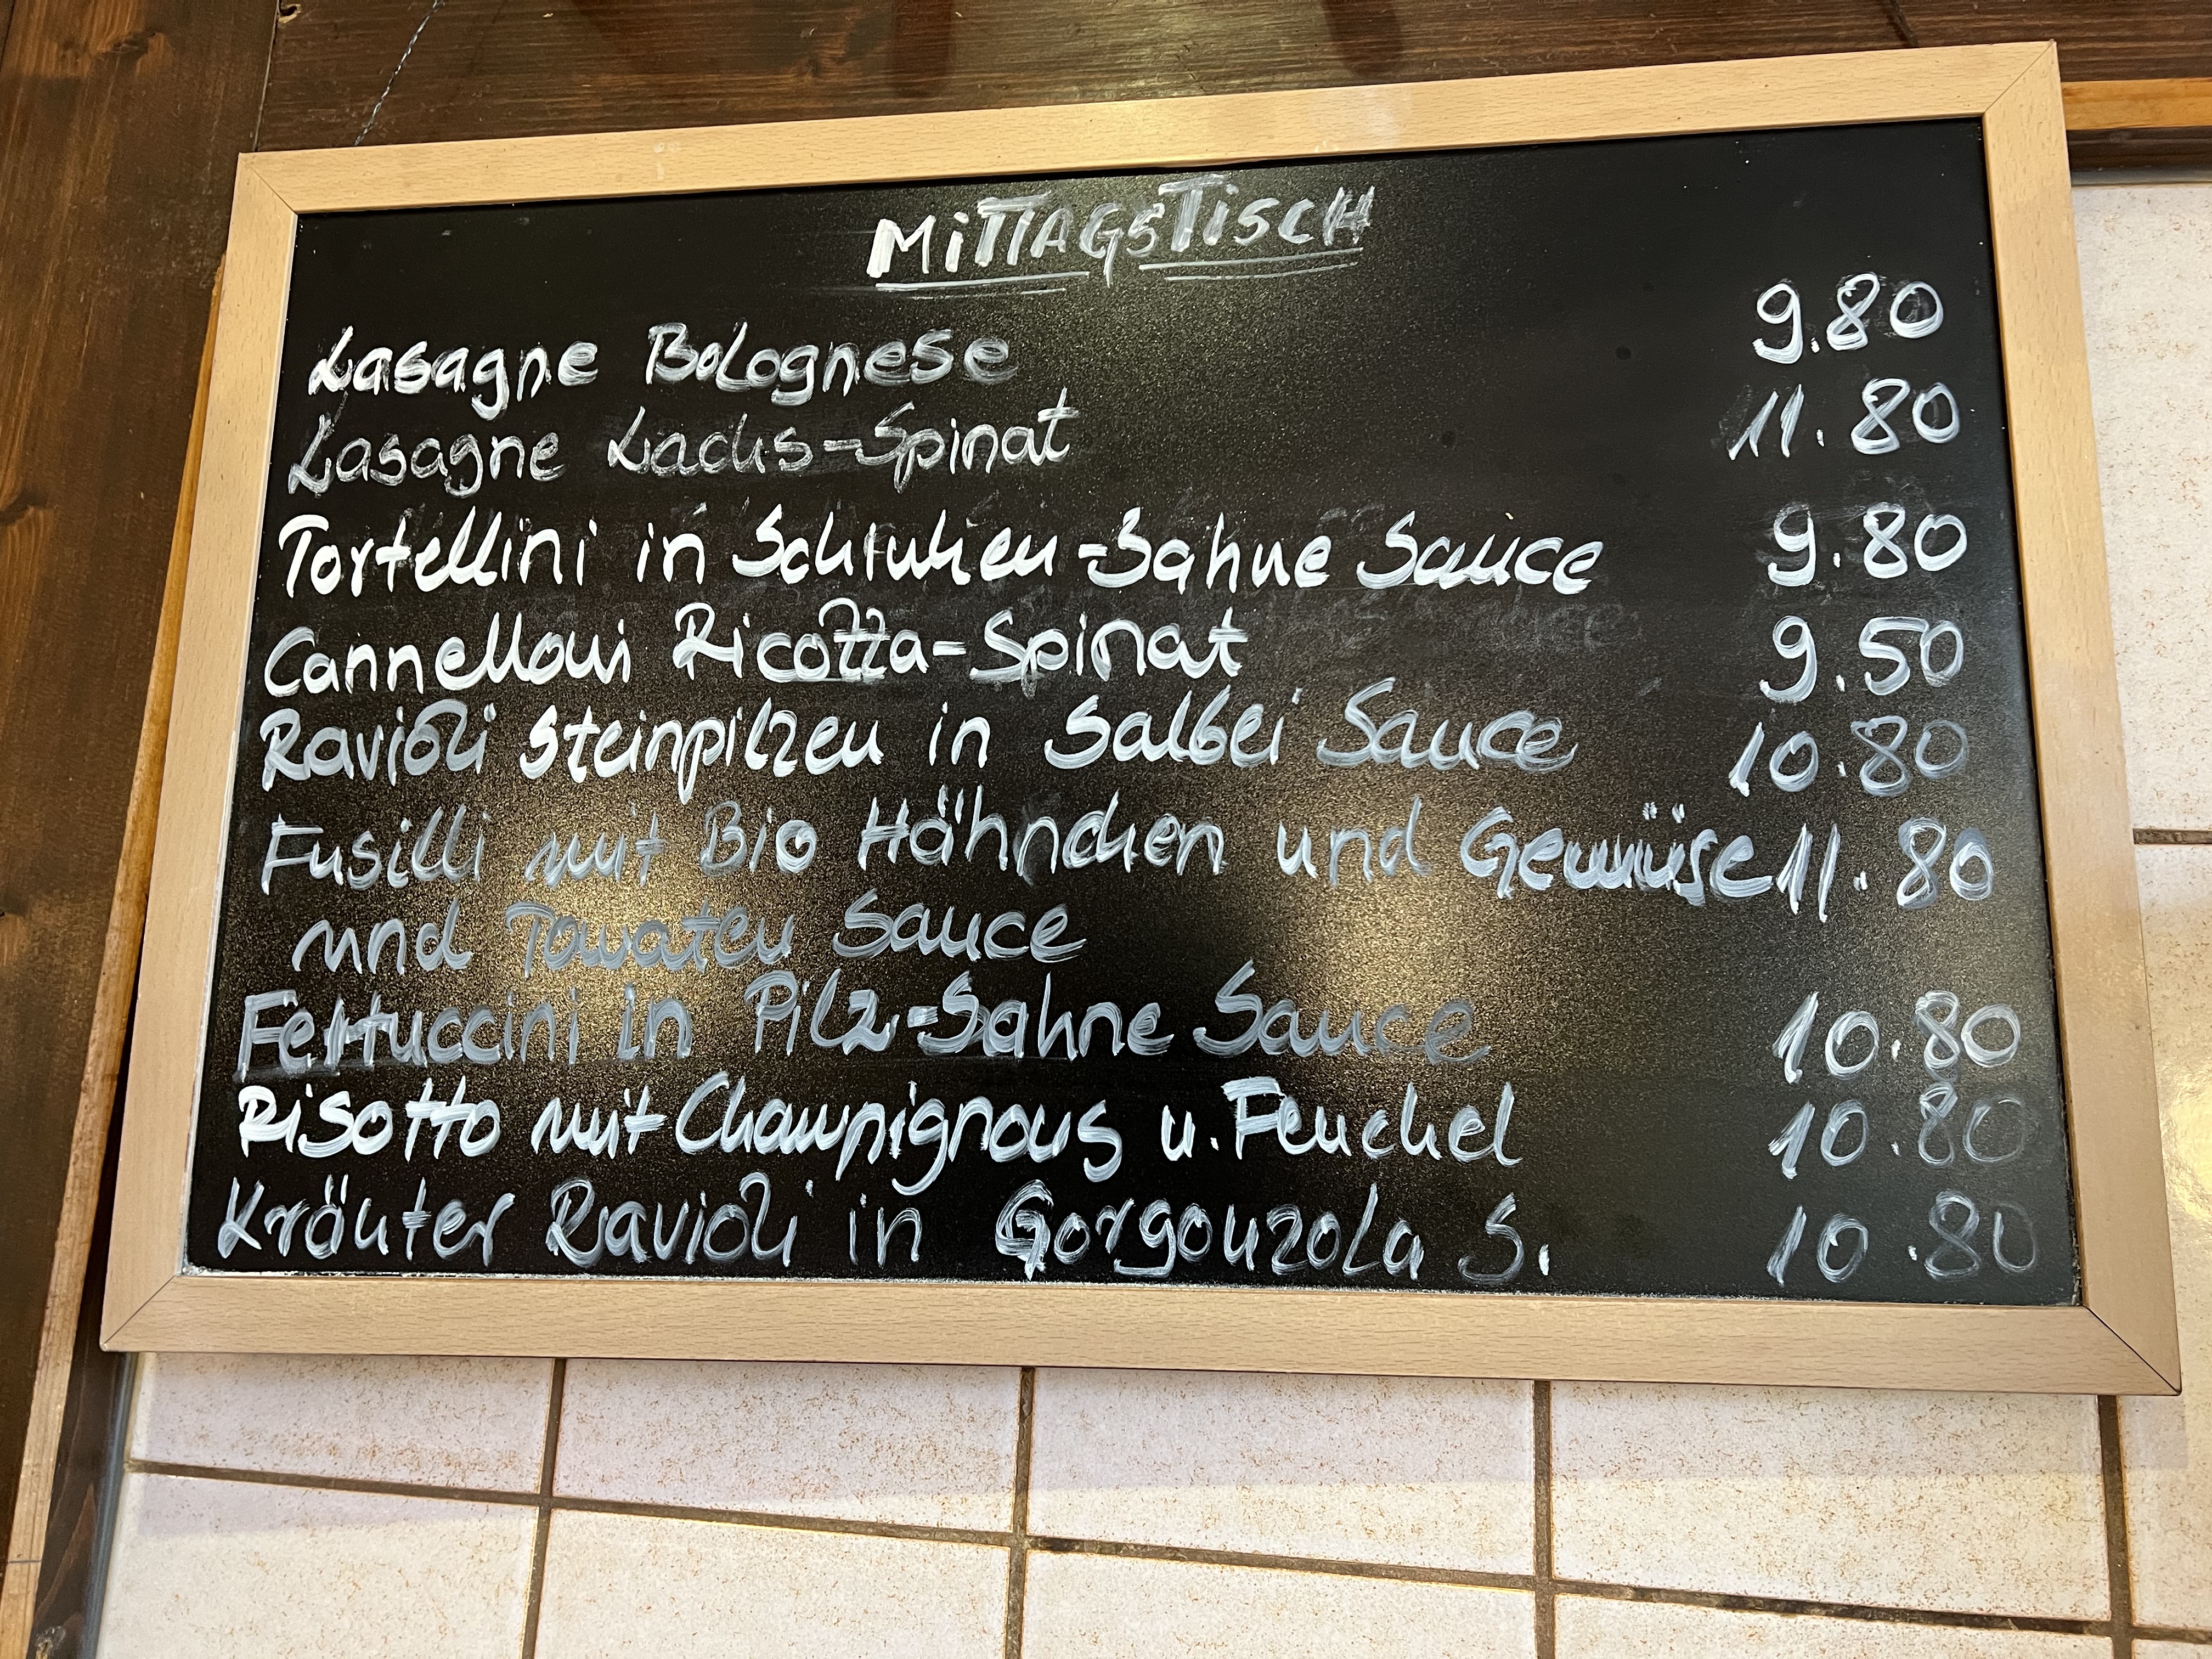 MiTTAGSTiSCH
Lasagne Bolognese 9.80
Lasagne Lachs-Spinat 11.80
Tortellini in Schinken-Sahne Sauce 9.80
Cannelloni Ricotta-Spinat 9.50
Ravioli Steinpilzen in Salbei Sauce 10.80
Fusilli mit Bio Hähnchen und Gemüse 11.80
und Tomaten Sauce
Fettuccini in Pilz-Sahne Sauce 10.80
Risotto mit Champignons u. Fenchel 10.80
Kräuter Ravioli in Gorgonzola S. 10.80